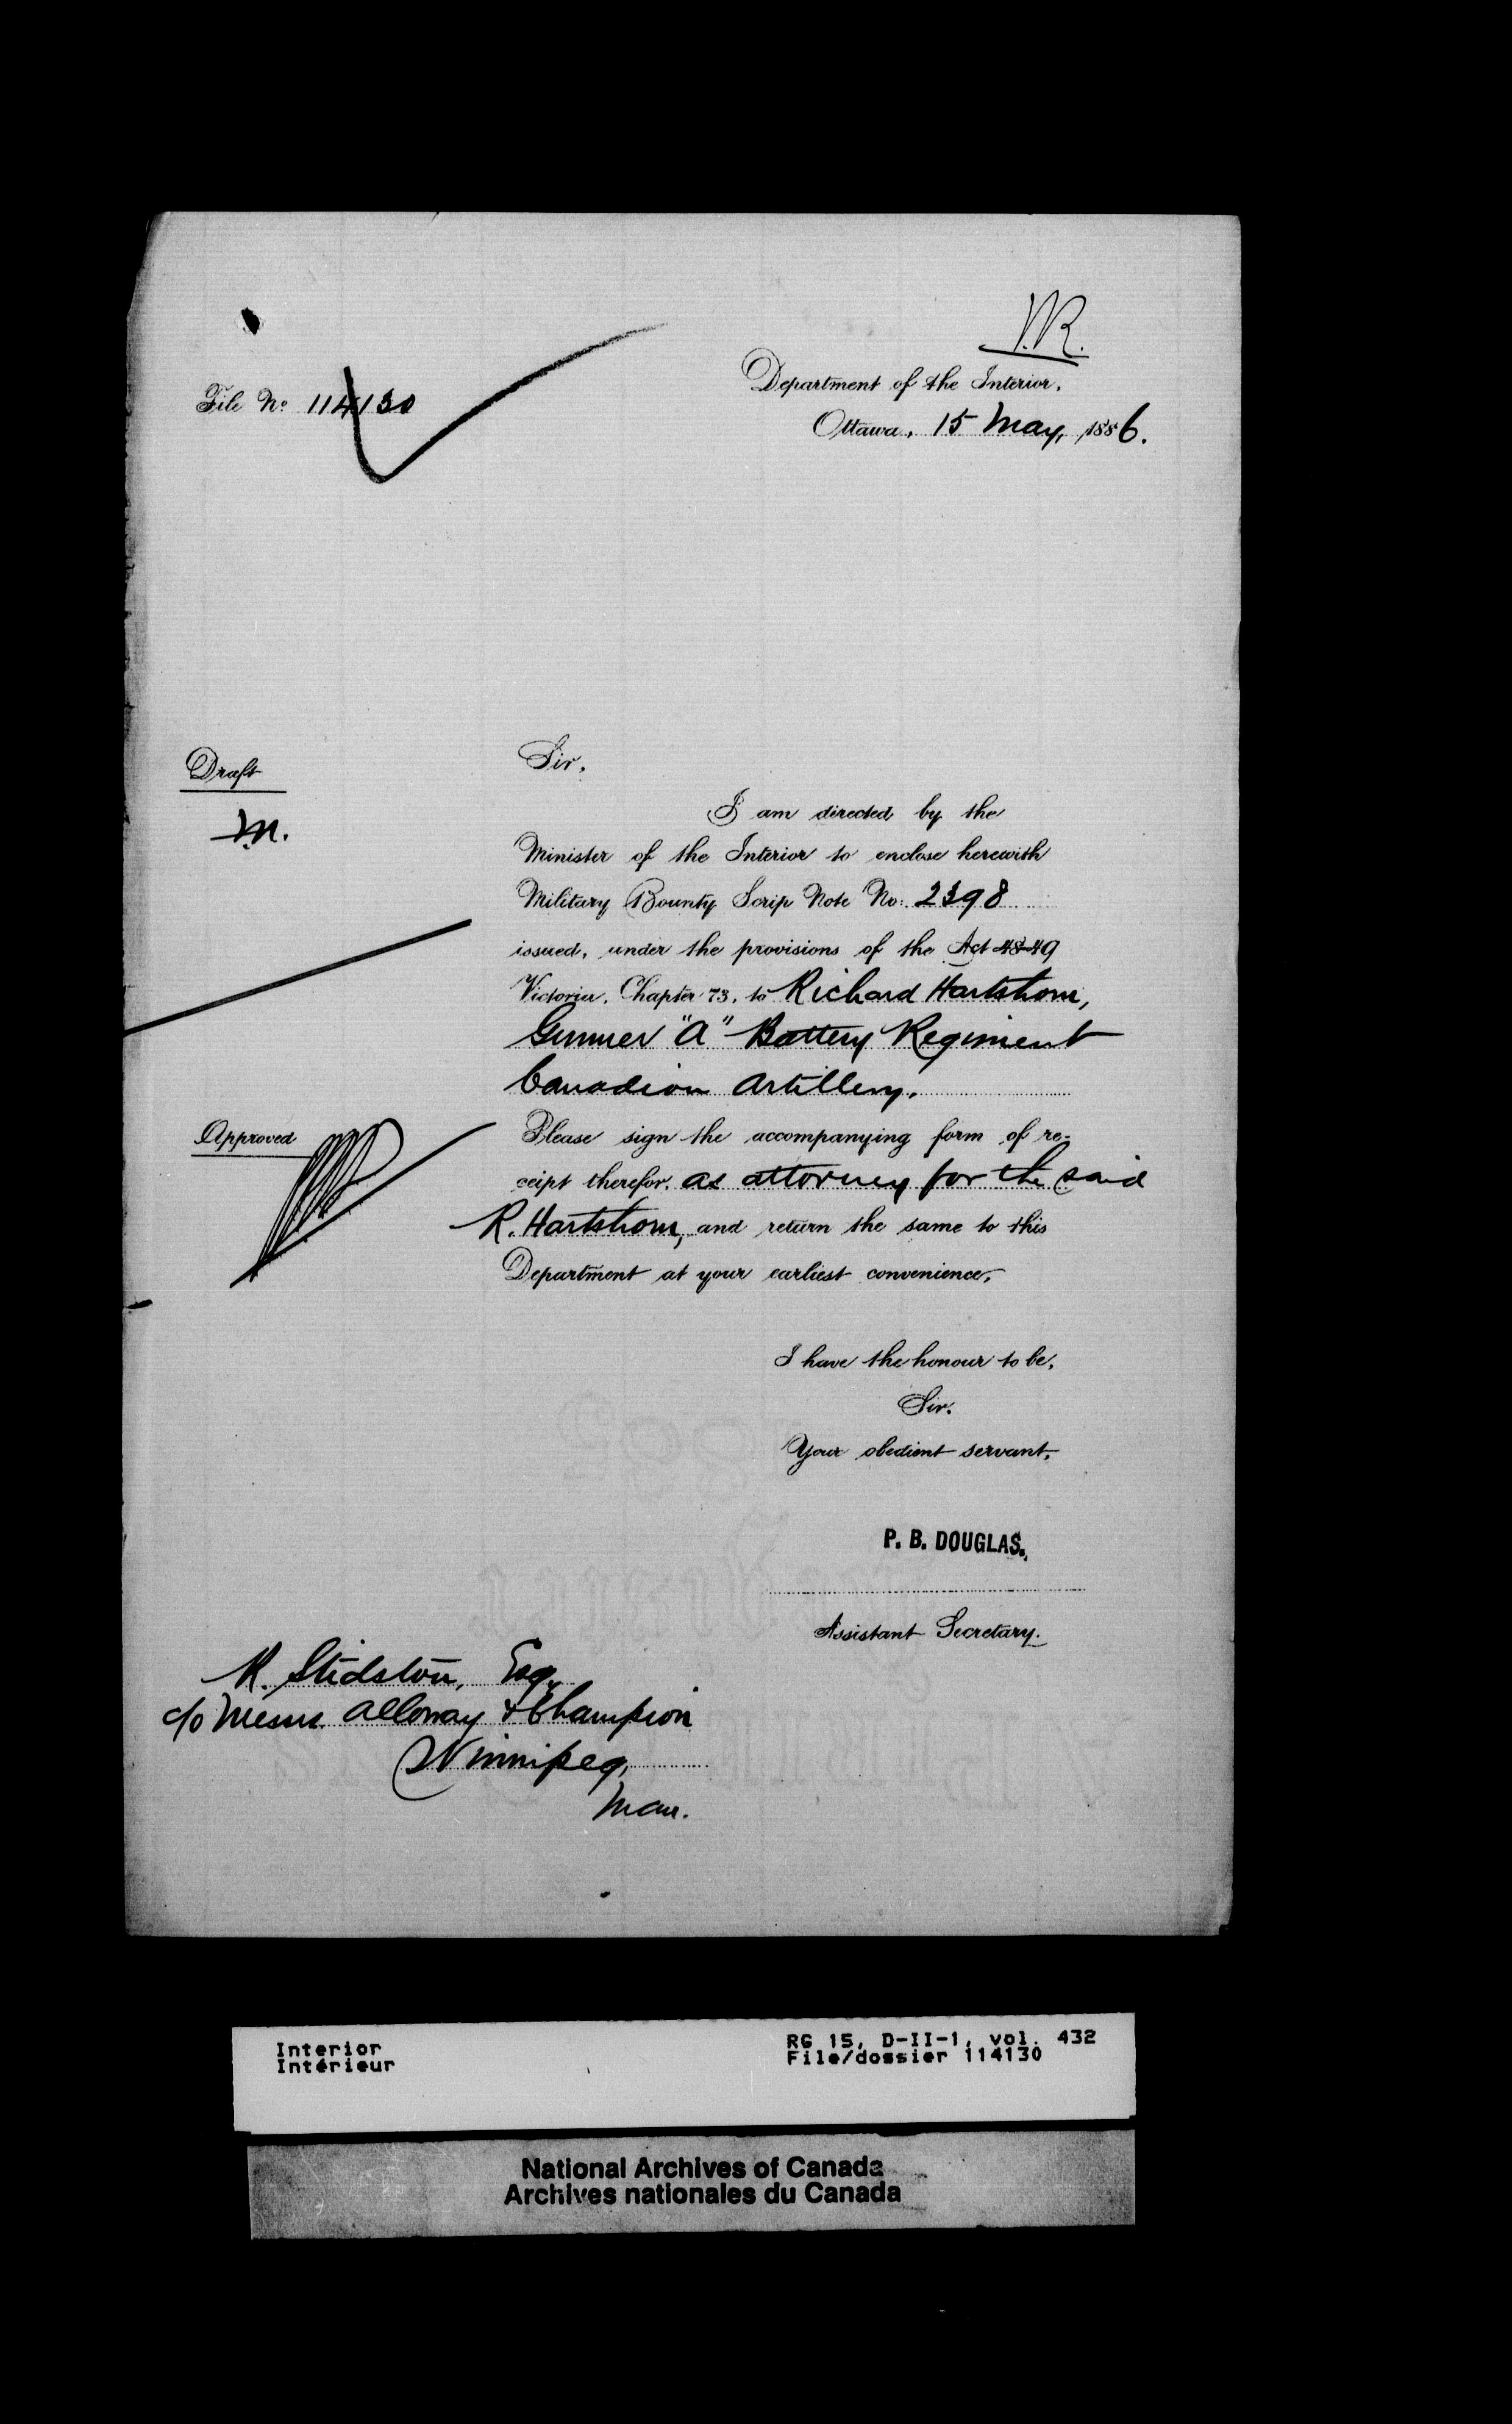 V.R.
Department of the Interior.
File No. 114130
Ottawa, 15 May, 1886.
Draft
Sir,
M.
I am directed by the
Minister of the Interior to enclose herewith
Military Bounty Scrip Note No: 2398
issued, under the provisions of the Act 48-49
Victoria, Chapter 73, to Richard Hartstrom,
Gunner "A" Battery Regiment
Canadian Artillery.
Approved
Please sign the accompanying form of re-
ceipt therefor, as attorney for the said
R. Hartstrom, and return the same to this
Department at your earliest convenience.
I have the honour to be,
Sir.
Your obedient servant,
P. B. DOUGLAS.
Assistant Secretary.
R. Stidston, Esq.
c/o Messrs. Alloway & Champion
Winnipeg,
Man.
Interior
Intérieur
RG 15, D-II-1, vol. 432
File/dossier 114130
National Archives of Canada
Archives nationales du Canada